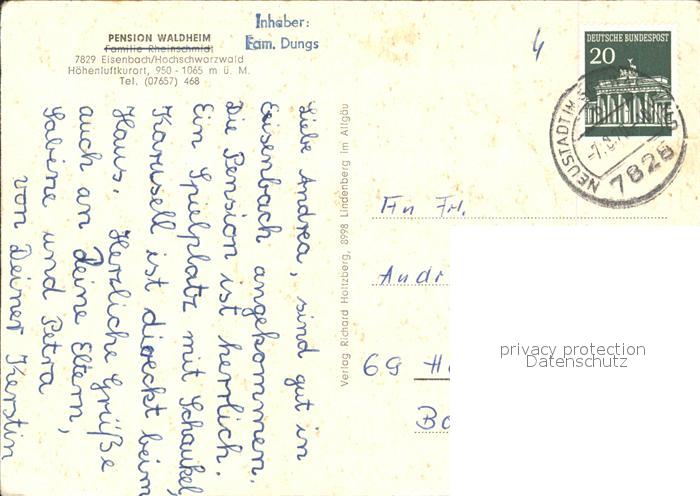 Inhaber:
Fam. Dungs
PENSION WALDHEIM
Familie Rheinschmidt
7829 Eisenbach/Hochschwarzwald
Höhenluftkurort, 950 - 1065 m ü. M.
Tel. (07657) 468
Liebe Andrea, sind gut in
Eisenbach angekommen.
Die Pension ist herrlich.
Ein Spielplatz mit Schaukel,
Karusell ist direckt beim
Haus. Herzliche Grüße
auch an Deine Eltern,
Sabine und Petra
von Deiner Kerstin
Verlag Richard Holtzberg, 8998 Lindenberg im Allgäu
4
DEUTSCHE BUNDESPOST
20
NEUSTADT IM
7828
An Frl.
Andr
69 H
Bo
privacy protection
Datenschutz